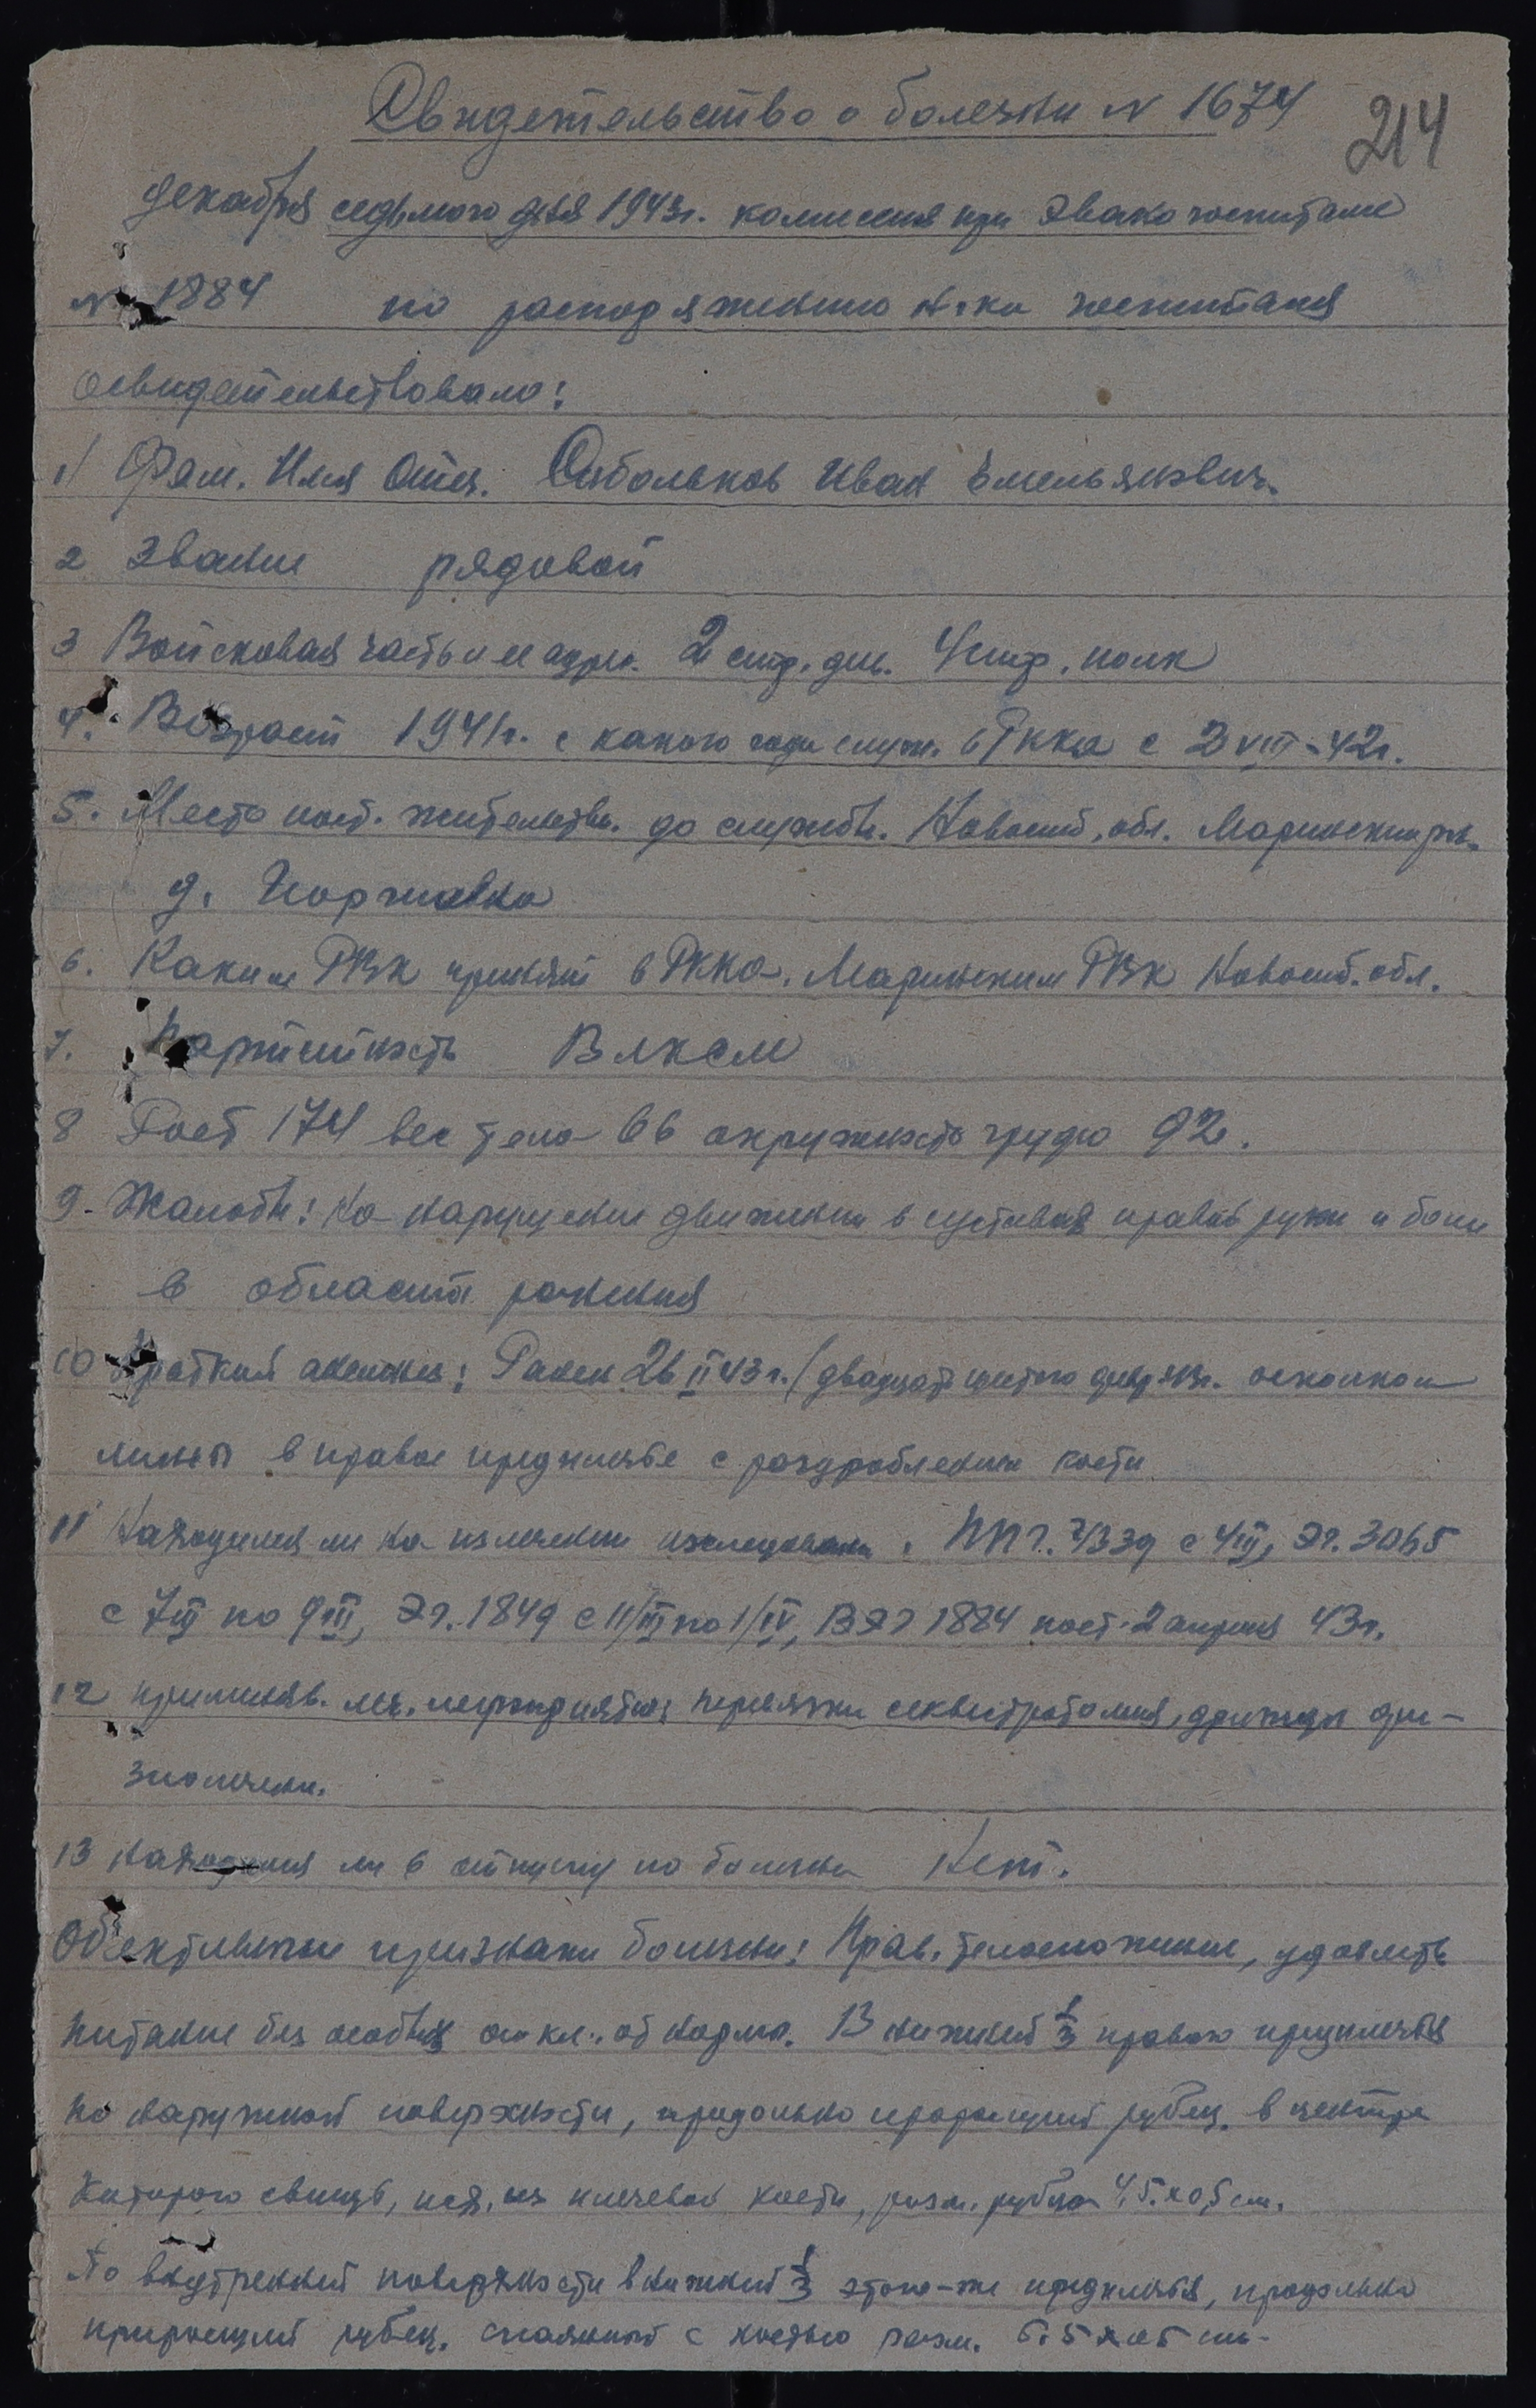 Свидетельство о болезни N 1674
214
декабря седьмого дня 1943г. комиссия при Эвакогоспитале
N 1884 по распоряжению н-ка госпиталя
освидетельствовала:
1) Фам. Имя Отч. Иван Емельянович.
2 Звание рядовой
3 Войсковая часть и ее адрес. 2 стр. див. 4 стр. полк
4. Возраст 1941г. с какого года служ. в РККА с 2 VIII-42г.
5. Место пост. жительства. до службы. Новосиб. обл. Мариинский р-н.
д.
6. Каким РВК принят в РККА. Мариинским РВК Новосиб. обл.
7. Партийность ВЛКСМ
8 Рост 174 вес тела 66 окружность груди 92.
9. Жалобы: На нарушение движения в суставах правой руки и боли
в области ранения
10 Краткий анамнез: Ранен 26 II 43г. (двадцать шестого февр. 43г. осколком
мины в правое предплечье с раздроблением кости
11 Находился ли на излечении ППГ. с 4 III, Эг. 3065
с 7 III по 9 III, Эг. 1849 с 11/III по 1/IV, В ЭГ 1884 пост. 2 апреля 43г.
12 применяв. леч. мероприятия: перевязки секвестротомия, дважды фи-
зиолечен.
13 находился ли в отпуску по болезни Нет.
Объективные признаки болезни: Прав. телосложение, удовлетв
питание без особых откл. от нормы. В нижней 1/3 правого предплечья
по наружной поверхности, продольно идущий рубец. в центре
которого свищ, исх. из плечевой кости, разм. рубца 4,5 x 0,5 см.
По внутренней поверхности в нижней 1/3 этого-же предплечья, продольно
рубец. спаянный с костью разм. 6.5 x 0.5 см.